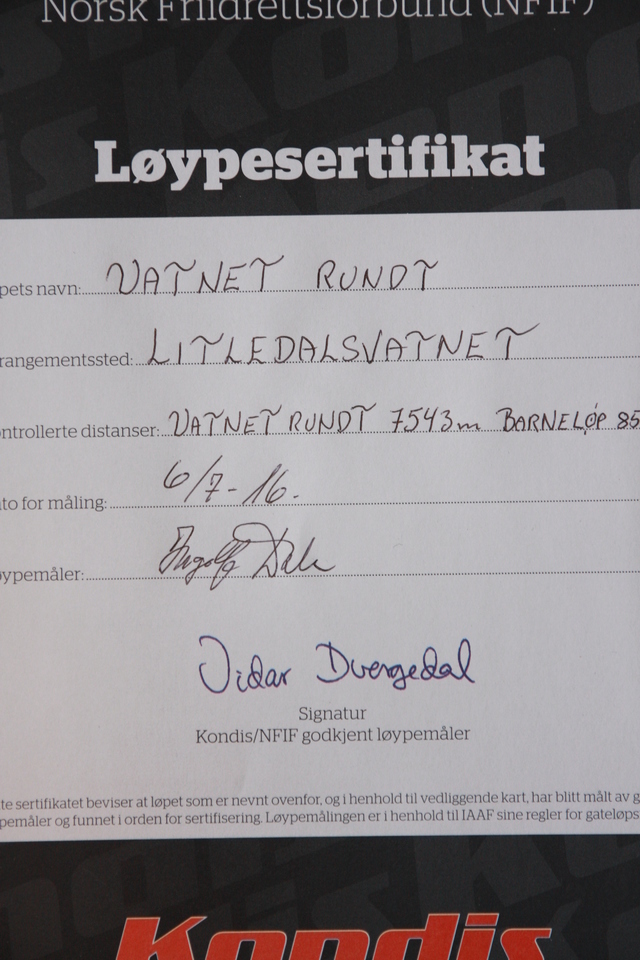 Norsk Friidrettsforbund (NFIF)
Løypesertifikat
pets navn: VATNET RUNDT
rangementssted: LITLEDALSVATNET
ntrollerte distanser: VATNET RUNDT 7543m BARNELØP 85
to for måling: 6/7-16.
ypemåler: Ingolf Dale
Vidar Dvergedal
Signatur
Kondis/NFIF godkjent løypemåler
te sertifikatet beviser at løpet som er nevnt ovenfor, og i henhold til vedliggende kart, har blitt målt av g
pemåler og funnet i orden for sertifisering. Løypemålingen er i henhold til IAAF sine regler for gateløps
Kondis